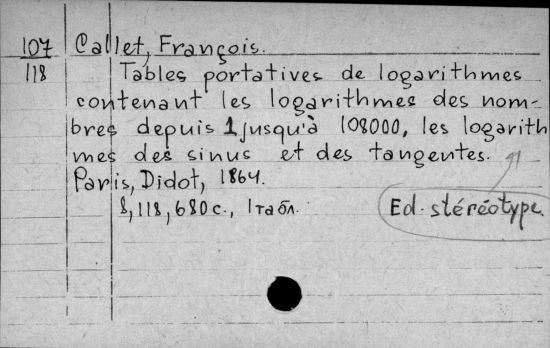 107 Callet, François.
118 Tables portatives de logarithmes
contenant les logarithmes des nom-
bres depuis 1 jusqu'à 108000, les logarith
mes des sinus et des tangentes.
Paris, Didot, 1864.
8, 118, 680 с., 1 табл.
Ed. stéréotype.